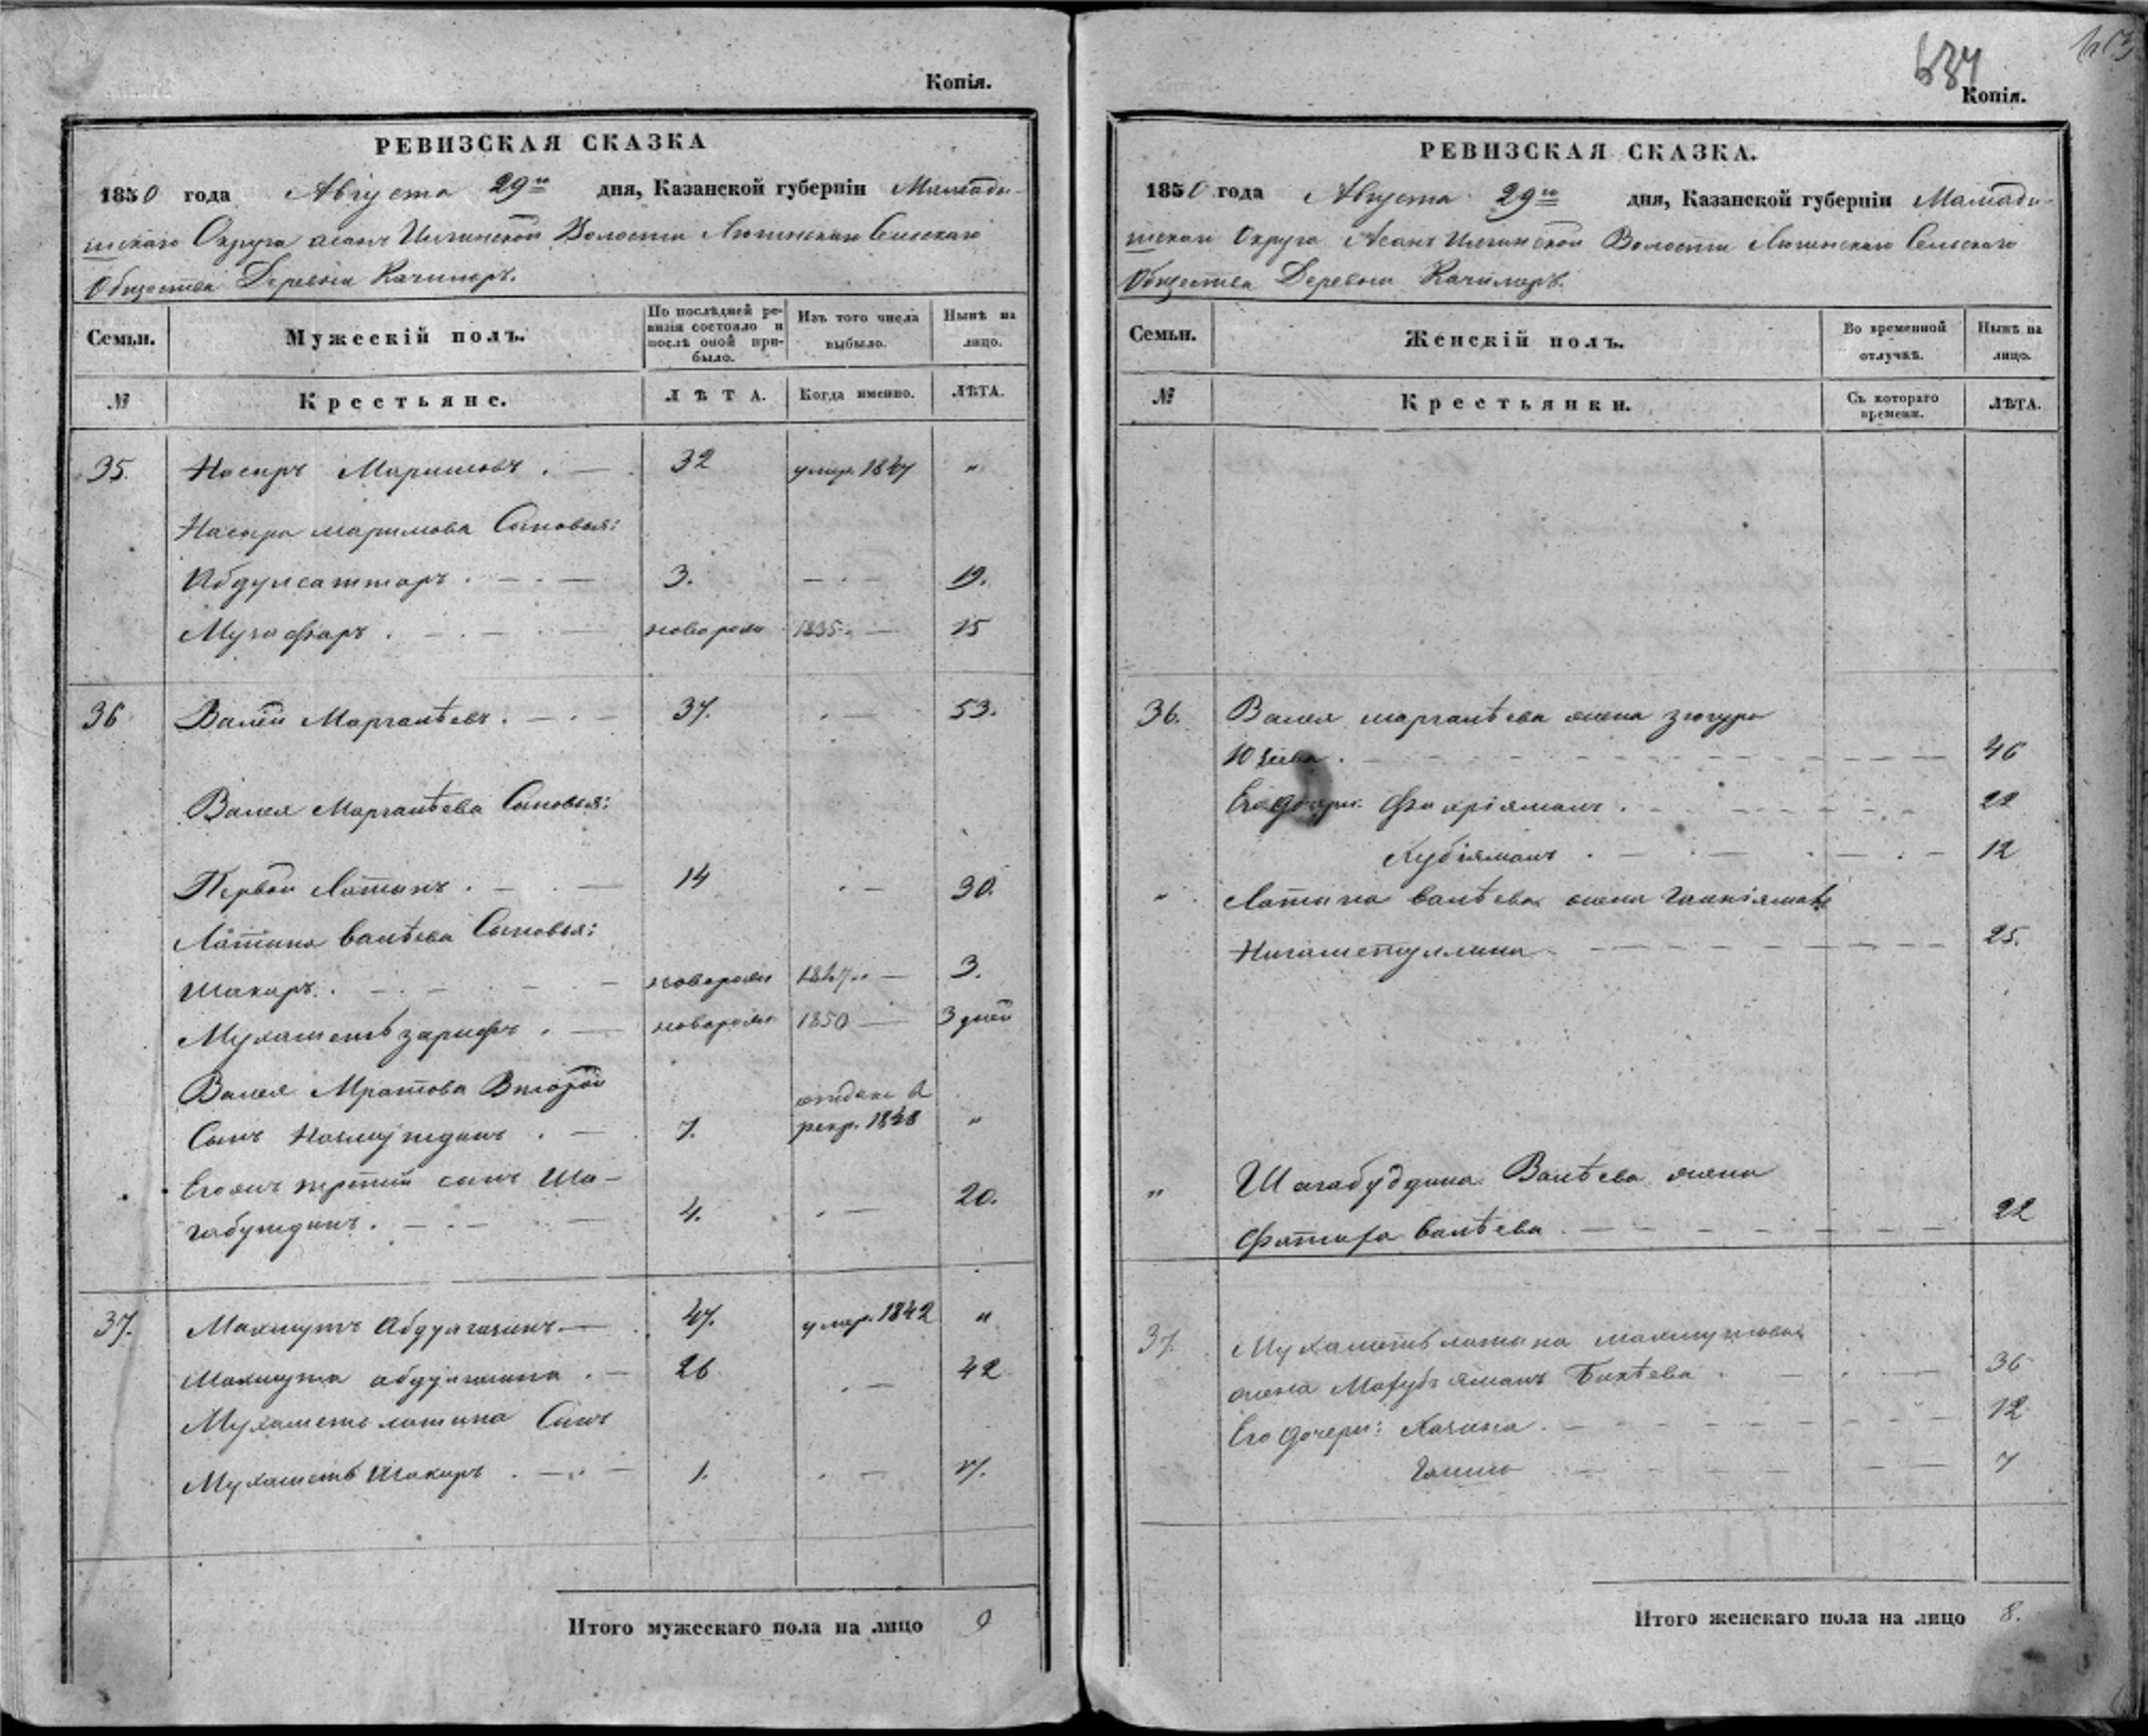 Копія.
РЕВИЗСКАЯ СКАЗКА
1850 года Августа 29го дня, Казанской губерніи Мамады-
шскаго Округа Асанъ Илгинской Волости Сельскаго
Общества Деревни Качимеръ.
Семьи. Мужескій полъ. По послѣдней ревизіи состояло и послѣ оной прибыло. Изъ того числа выбыло. Нынѣ на лицо.
№ Крестьяне. ЛѢТА. Когда именно. ЛѢТА.
35. Насыръ Маримовъ . — 32 умер. 1847 "
Насыра Маримова Сыновья:
Абдулсаттаръ . — . — 3. — . — 19.
Музафаръ . — . — . — новорож 1835 . — 15
36 Валей Маргалѣевъ . — . — 37. . — 53.
Валея Маргалѣева Сыновья:
Первой Латыпъ . — . — 14 . — 30.
Латыпа Валѣева Сыновья:
Шакиръ . — . — . — новорож 1847 . — 3.
Мухаметьзарифъ . — новорож 1850 — 3 дней
Валея Мратова Второй отданъ в
Сынъ . — 7. рекр. 1848 "
Егожъ третій сынъ Ша-
габутдинъ . — . — . — 4. . — 20.
37. Махмутъ — 47. умер. 1842 "
Махмута . — 26 . — 42
Мухаметь латыпа Сынъ
Мухаметь Шакиръ . — . — 1. . — 17.
Итого мужескаго пола на лицо 9
634
Копія.
РЕВИЗСКАЯ СКАЗКА.
1850 года Августа 29го дня, Казанской губерніи Мамады-
шскаго Округа Асанъ Илгинской Волости Сельскаго
Общества Деревни Качимеръ.
Семьи. Женскій полъ. Во временной отлучкѣ. Нынѣ на лицо.
№ Крестьянки. Съ котораго времени. ЛѢТА.
36. Валея Маргалѣева жена Зюгура
46
Его дочери: Фахріяманъ . — 22
Хубіяманъ . — . — . — 12
" Латыпа Валѣева жена
Нигаметуллина — 25.
" Шагабуддина Валѣева жена
Валѣева . — 22
37. Мухаметьлатыпа Махмутова
жена Бикѣева . — 36
Его дочери: . — 12
— 7
Итого женскаго пола на лицо 8.